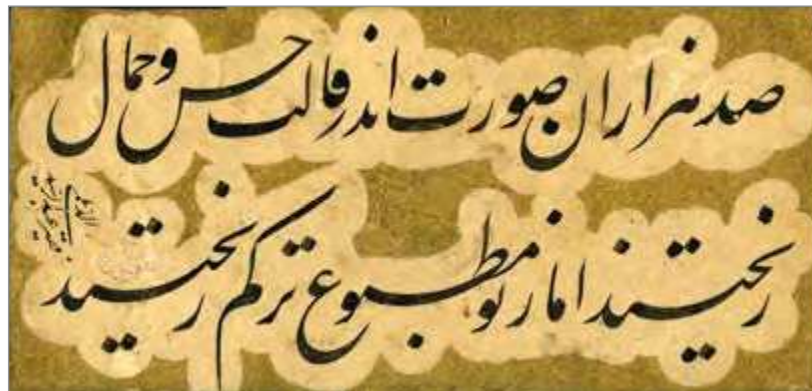 صد هزاران صورت اندر قالب حسن و جمال
ریختند اما ز تو مطبوع تر کم ریختند